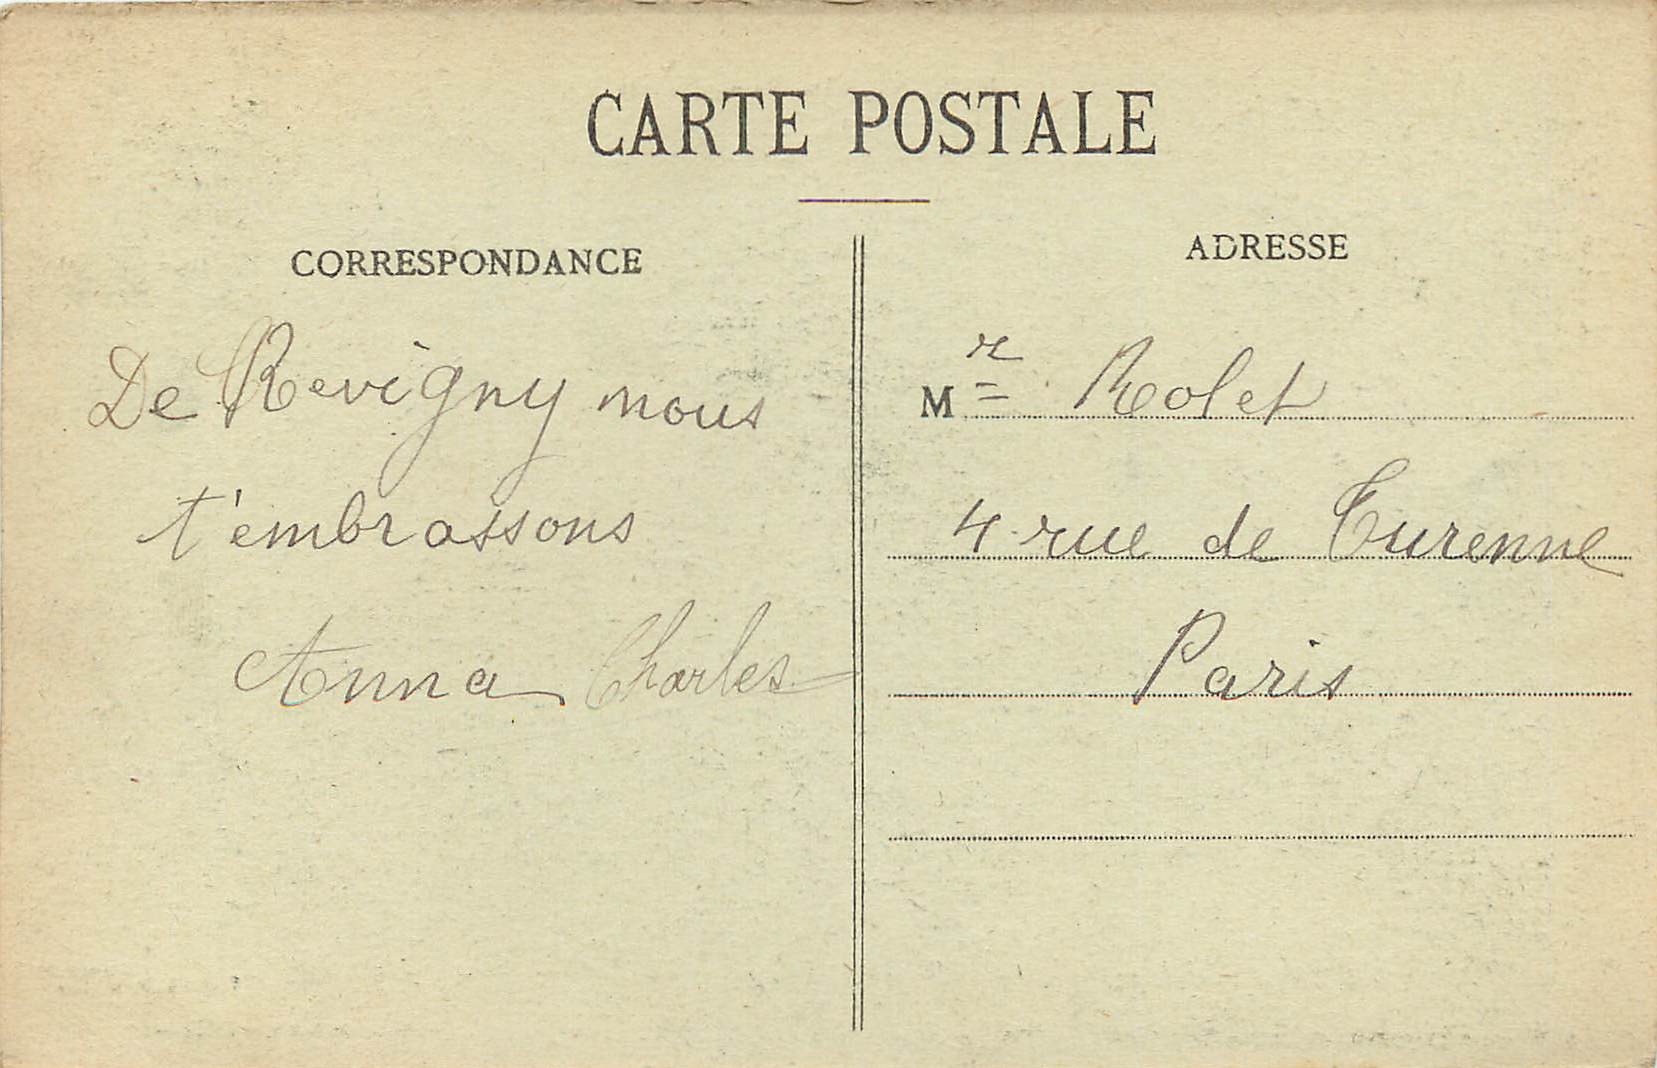 CARTE POSTALE
CORRESPONDANCE
De Revigny nous
t'embrassons
Anna Charles
ADRESSE
Mr Rolet
4 rue de Turenne
Paris